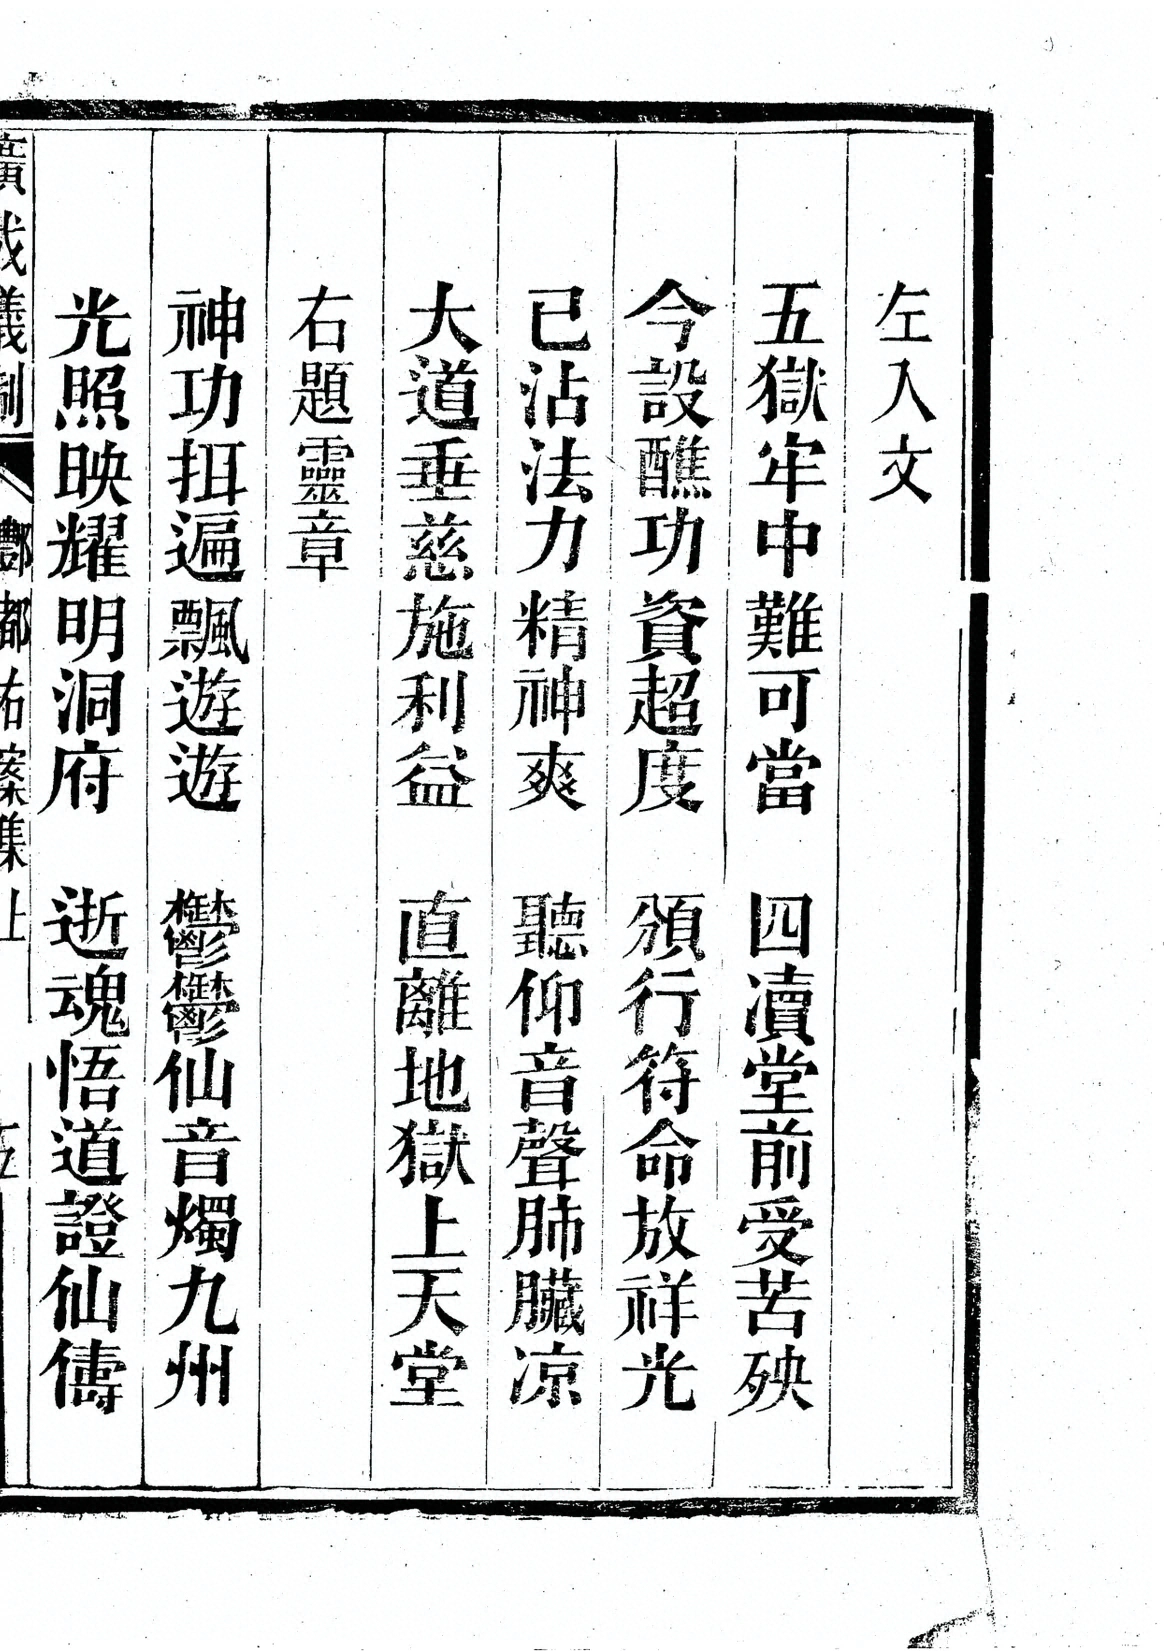 左入文
五獄牢中難可當　四瀆堂前受苦殃
今設醮功資超度　頒行符命放祥光
已沾法力精神爽　聽仰音聲肺臟凉
大道垂慈施利益　直離地獄上天堂
右題靈章
神功挕遍飄遊遊　鬱鬱仙音燭九州
光照映耀明洞府　逝魂悟道證仙儔
廣成儀制　酆都拔罪集上